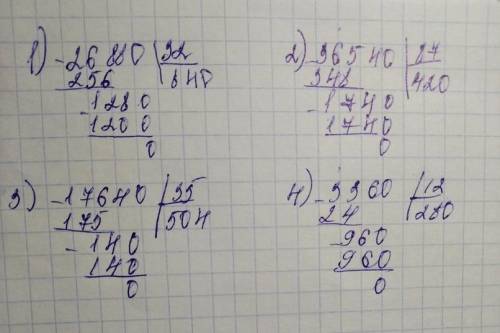 1) -26880 | 32
256 | 840
-1280
1200
0
2) -36540 | 87
348 | 420
-1740
1740
0
3) -17640 | 35
175 | 504
-140
140
0
4) -3360 | 12
24 | 280
-960
960
0